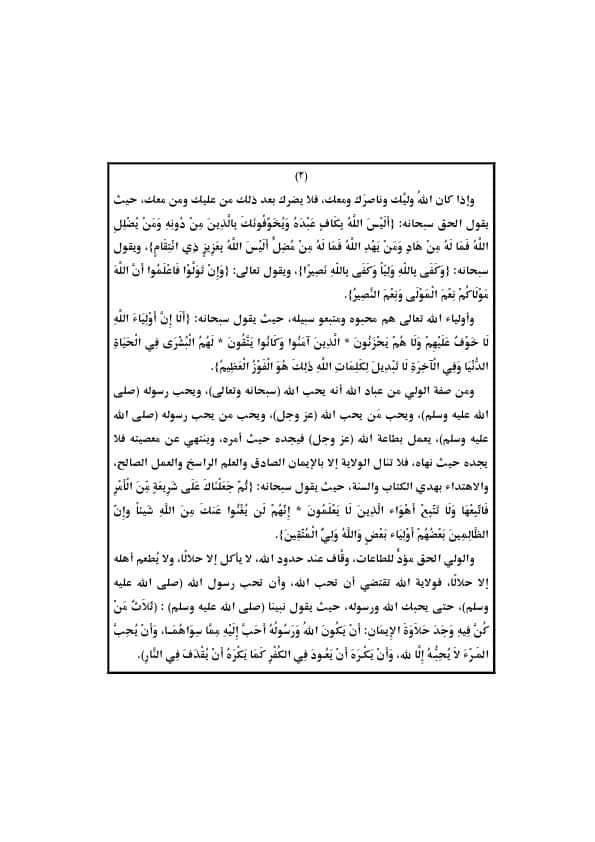 (٢)
وإذا كان اللهُ وليَّك وناصرَك ومعك، فلا يضرك بعد ذلك من عليك ومن معك، حيث
يقول الحق سبحانه: {أَلَيْسَ اللَّهُ بِكَافٍ عَبْدَهُ وَيُخَوِّفُونَكَ بِالَّذِينَ مِنْ دُونِهِ وَمَنْ يُضْلِلِ
اللَّهُ فَمَا لَهُ مِنْ هَادٍ وَمَنْ يَهْدِ اللَّهُ فَمَا لَهُ مِنْ مُضِلٍّ أَلَيْسَ اللَّهُ بِعَزِيزٍ ذِي انْتِقَامٍ}، ويقول
سبحانه: {وَكَفَى بِاللَّهِ وَلِيًّا وَكَفَى بِاللَّهِ نَصِيرًا}، ويقول تعالى: {وَإِنْ تَوَلَّوْا فَاعْلَمُوا أَنَّ اللَّهَ
مَوْلَاكُمْ نِعْمَ الْمَوْلَى وَنِعْمَ النَّصِيرُ}.
وأولياء الله تعالى هم محبوه ومتبعو سبيله، حيث يقول سبحانه: {أَلَا إِنَّ أَوْلِيَاءَ اللَّهِ
لَا خَوْفٌ عَلَيْهِمْ وَلَا هُمْ يَحْزَنُونَ * الَّذِينَ آمَنُوا وَكَانُوا يَتَّقُونَ * لَهُمُ الْبُشْرَى فِي الْحَيَاةِ
الدُّنْيَا وَفِي الْآخِرَةِ لَا تَبْدِيلَ لِكَلِمَاتِ اللَّهِ ذَلِكَ هُوَ الْفَوْزُ الْعَظِيمُ}.
ومن صفة الولي من عباد الله أنه يحب الله (سبحانه وتعالى)، ويحب رسوله (صلى
الله عليه وسلم)، ويحب مَن يحب الله (عز وجل)، ويحب من يحب رسوله (صلى الله
عليه وسلم)، يعمل بطاعة الله (عز وجل) فيجده حيث أمره، وينتهي عن معصيته فلا
يجده حيث نهاه، فلا تنال الولاية إلا بالإيمان الصادق والعلم الراسخ والعمل الصالح،
والاهتداء بهدي الكتاب والسنة، حيث يقول سبحانه: {ثُمَّ جَعَلْنَاكَ عَلَى شَرِيعَةٍ مِّنَ الْأَمْرِ
فَاتَّبِعْهَا وَلَا تَتَّبِعْ أَهْوَاء الَّذِينَ لَا يَعْلَمُونَ * إِنَّهُمْ لَن يُغْنُوا عَنكَ مِنَ اللَّهِ شَيئاً وإِنَّ
الظَّالِمِينَ بَعْضُهُمْ أَوْلِيَاء بَعْضٍ وَاللَّهُ وَلِيُّ الْمُتَّقِينَ}.
والولي الحق مؤدٍّ للطاعات، وقَّاف عند حدود الله، لا يأكل إلا حلالًا، ولا يُطعم أهله
إلا حلالًا، فولاية الله تقتضي أن تحب الله، وأن تحب رسول الله (صلى الله عليه
وسلم)، حتى يحبك الله ورسوله، حيث يقول نبينا (صلى الله عليه وسلم) : (ثَلاَثٌ مَنْ
كُنَّ فِيهِ وَجَدَ حَلاَوَةَ الإِيمَانِ: أَنْ يَكُونَ اللهُ وَرَسُولُهُ أَحَبَّ إِلَيْهِ مِمَّا سِوَاهُمَا، وَأَنْ يُحِبَّ
المَرْءَ لاَ يُحِبُّهُ إِلَّا لله، وَأَنْ يَكْرَهَ أَنْ يَعُودَ فِي الكُفْرِ كَمَا يَكْرَهُ أَنْ يُقْذَفَ فِي النَّارِ).